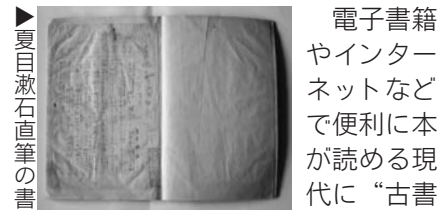 ▶夏目漱石直筆の書
電子書籍
やインター
ネットなど
で便利に本
が読める現
代に“古書